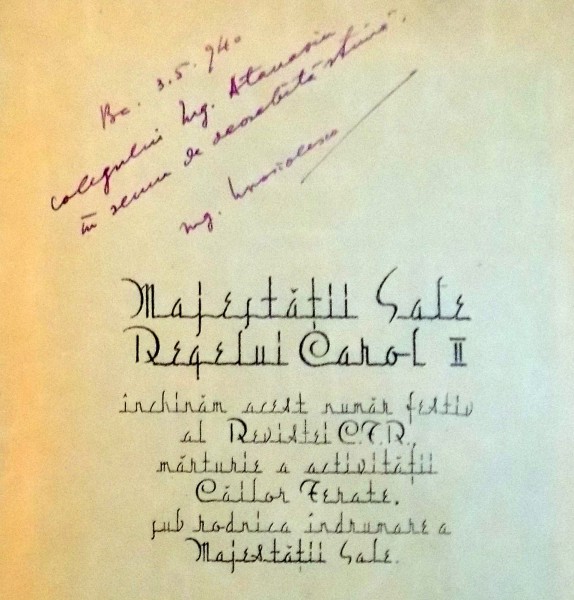 Bc. 3.5.940
colegului Ing. Atanasiu
în semn de deosebită stimă.
Ing.
Majestății Sale
Regelui Carol II
închinăm acest număr festiv
al Revistei C.F.R.,
mărturie a activității
Căilor Ferate,
sub rodnica îndrumare a
Majestății Sale.